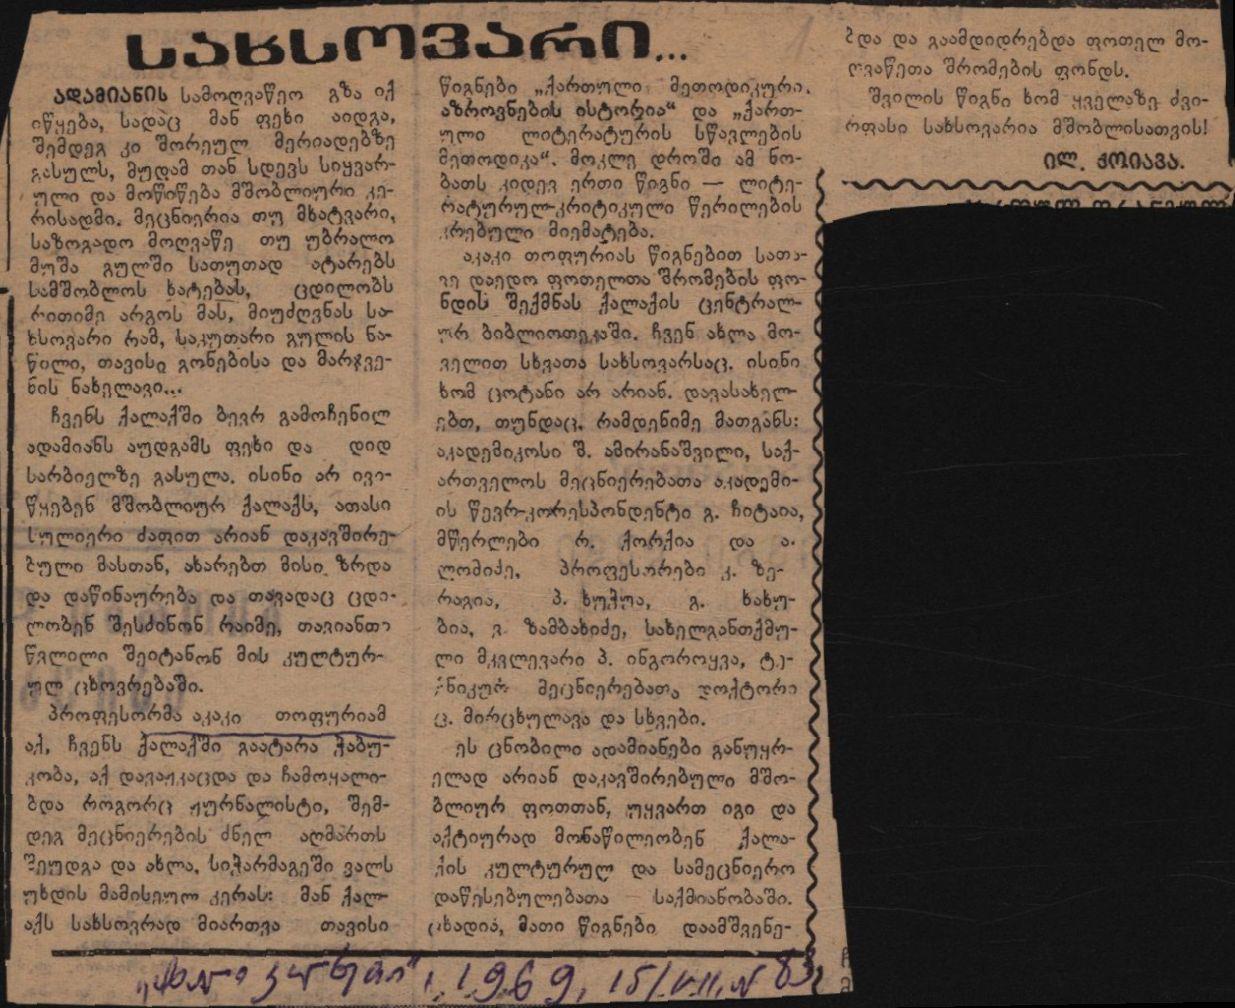 სახსოვარი...
ადამიანის სამოღვაწეო გზა იქ
იწყება, სადაც მან ფეხი აიდგა,
შემდეგ კი შორეულ მერიადებზე
გასულს, მუდამ თან სდევს სიყვარ-
ული და მოწიწება მშობლიური კე-
რისადმი. მეცნიერია თუ მხატვარი,
საზოგადო მოღვაწე თუ უბრალო
მუშა გულში სათუთად ატარებს
სამშობლოს ხატებას, ცდილობს
რითიმე არგოს მას, მიუძღვნას სა-
ხსოვარი რამ, საკუთარი გულის ნა-
წილი, თავისი გონებისა და მარჯვე-
ნის ნახელავი...
ჩვენს ქალაქში ბევრ გამოჩენილ
ადამიანს აუდგამს ფეხი და დიდ
სარბიელზე გასულა. ისინი არ ივი-
წყებენ მშობლიურ ქალაქს, ათასი
სულიერი ძაფით არიან დაკავშირე-
ბული მასთან, ახარებთ მისი ზრდა
და დაწინაურება და თავადაც ცდი-
ლობენ შესძინონ რაიმე, თავიანთი
წვლილი შეიტანონ მის კულტურ-
ულ ცხოვრებაში.
პროფესორმა აკაკი თოფურიამ
აქ, ჩვენს ქალაქში გაატარა ჭაბუ-
კობა, აქ დავაჟკაცდა და ჩამოყალი-
ბდა როგორც ჟურნალისტი, შემ-
დეგ მეცნიერების ძნელ აღმართს
შეუდგა და ახლა, სიჭარმაგეში ვალს
უხდის მამისეულ კერას: მან ქალ-
აქს სახსოვრად მიართვა თავისი
წიგნები „ქართული მეთოდიკური
აზროვნების ისტორია“ და „ქართ-
ული ლიტერატურის სწავლების
მეთოდიკა“. მოკლე დროში ამ ნო-
ბათს კიდევ ერთი წიგნი — ლიტე-
რატურულ-კრიტიკული წერილების
კრებული მიემატება.
აკაკი თოფურიას წიგნებით სათა-
ვე დაედო ფოთელთა შრომების ფო-
ნდის შექმნას ქალაქის ცენტრალ-
ურ ბიბლიოთეკაში. ჩვენ ახლა მო-
ველით სხვათა სახსოვარსაც. ისინი
ხომ ცოტანი არ არიან. დავასახელ-
ებთ, თუნდაც, რამდენიმე მათგანს:
აკადემიკოსი შ. ამირანაშვილი, საქ-
ართველოს მეცნიერებათა აკადემი-
ის წევრ-კორესპონდენტი გ. ჩიტაია,
მწერლები რ. ქორქია და ა.
ლომიძე, პროფესორები კ. ზე-
რაგია, პ. ხუჭუა, გ. ხახუ-
ბია, ვ. ზამბახიძე, სახელგანთქმუ-
ლი მკვლევარი პ. ინგოროყვა, ტე-
ხნიკურ მეცნიერებათა დოქტორი
ც. მირცხულავა და სხვები.
ეს ცნობილი ადამიანები განუყრ-
ელად არიან დაკავშირებული მშო-
ბლიურ ფოთთან, უყვართ იგი და
აქტიურად მონაწილეობენ ქალა-
ქის კულტურულ და სამეცნიერო
დაწესებულებათა საქმიანობაში.
ცხადია, მათი წიგნები დაამშვენე-
ბდა და გაამდიდრებდა ფოთელ მო-
ღვაწეთა შრომების ფონდს.
შვილის წიგნი ხომ ყველაზე ძვი-
რფასი სახსოვარია მშობლისათვის!
ილ. ჭოიავა.
1969, 15/VII, N 83